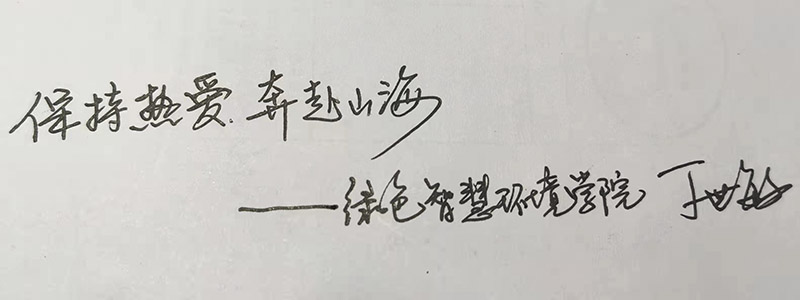 保持热爱.奔赴山海
——绿色智慧环境学院 丁世敏